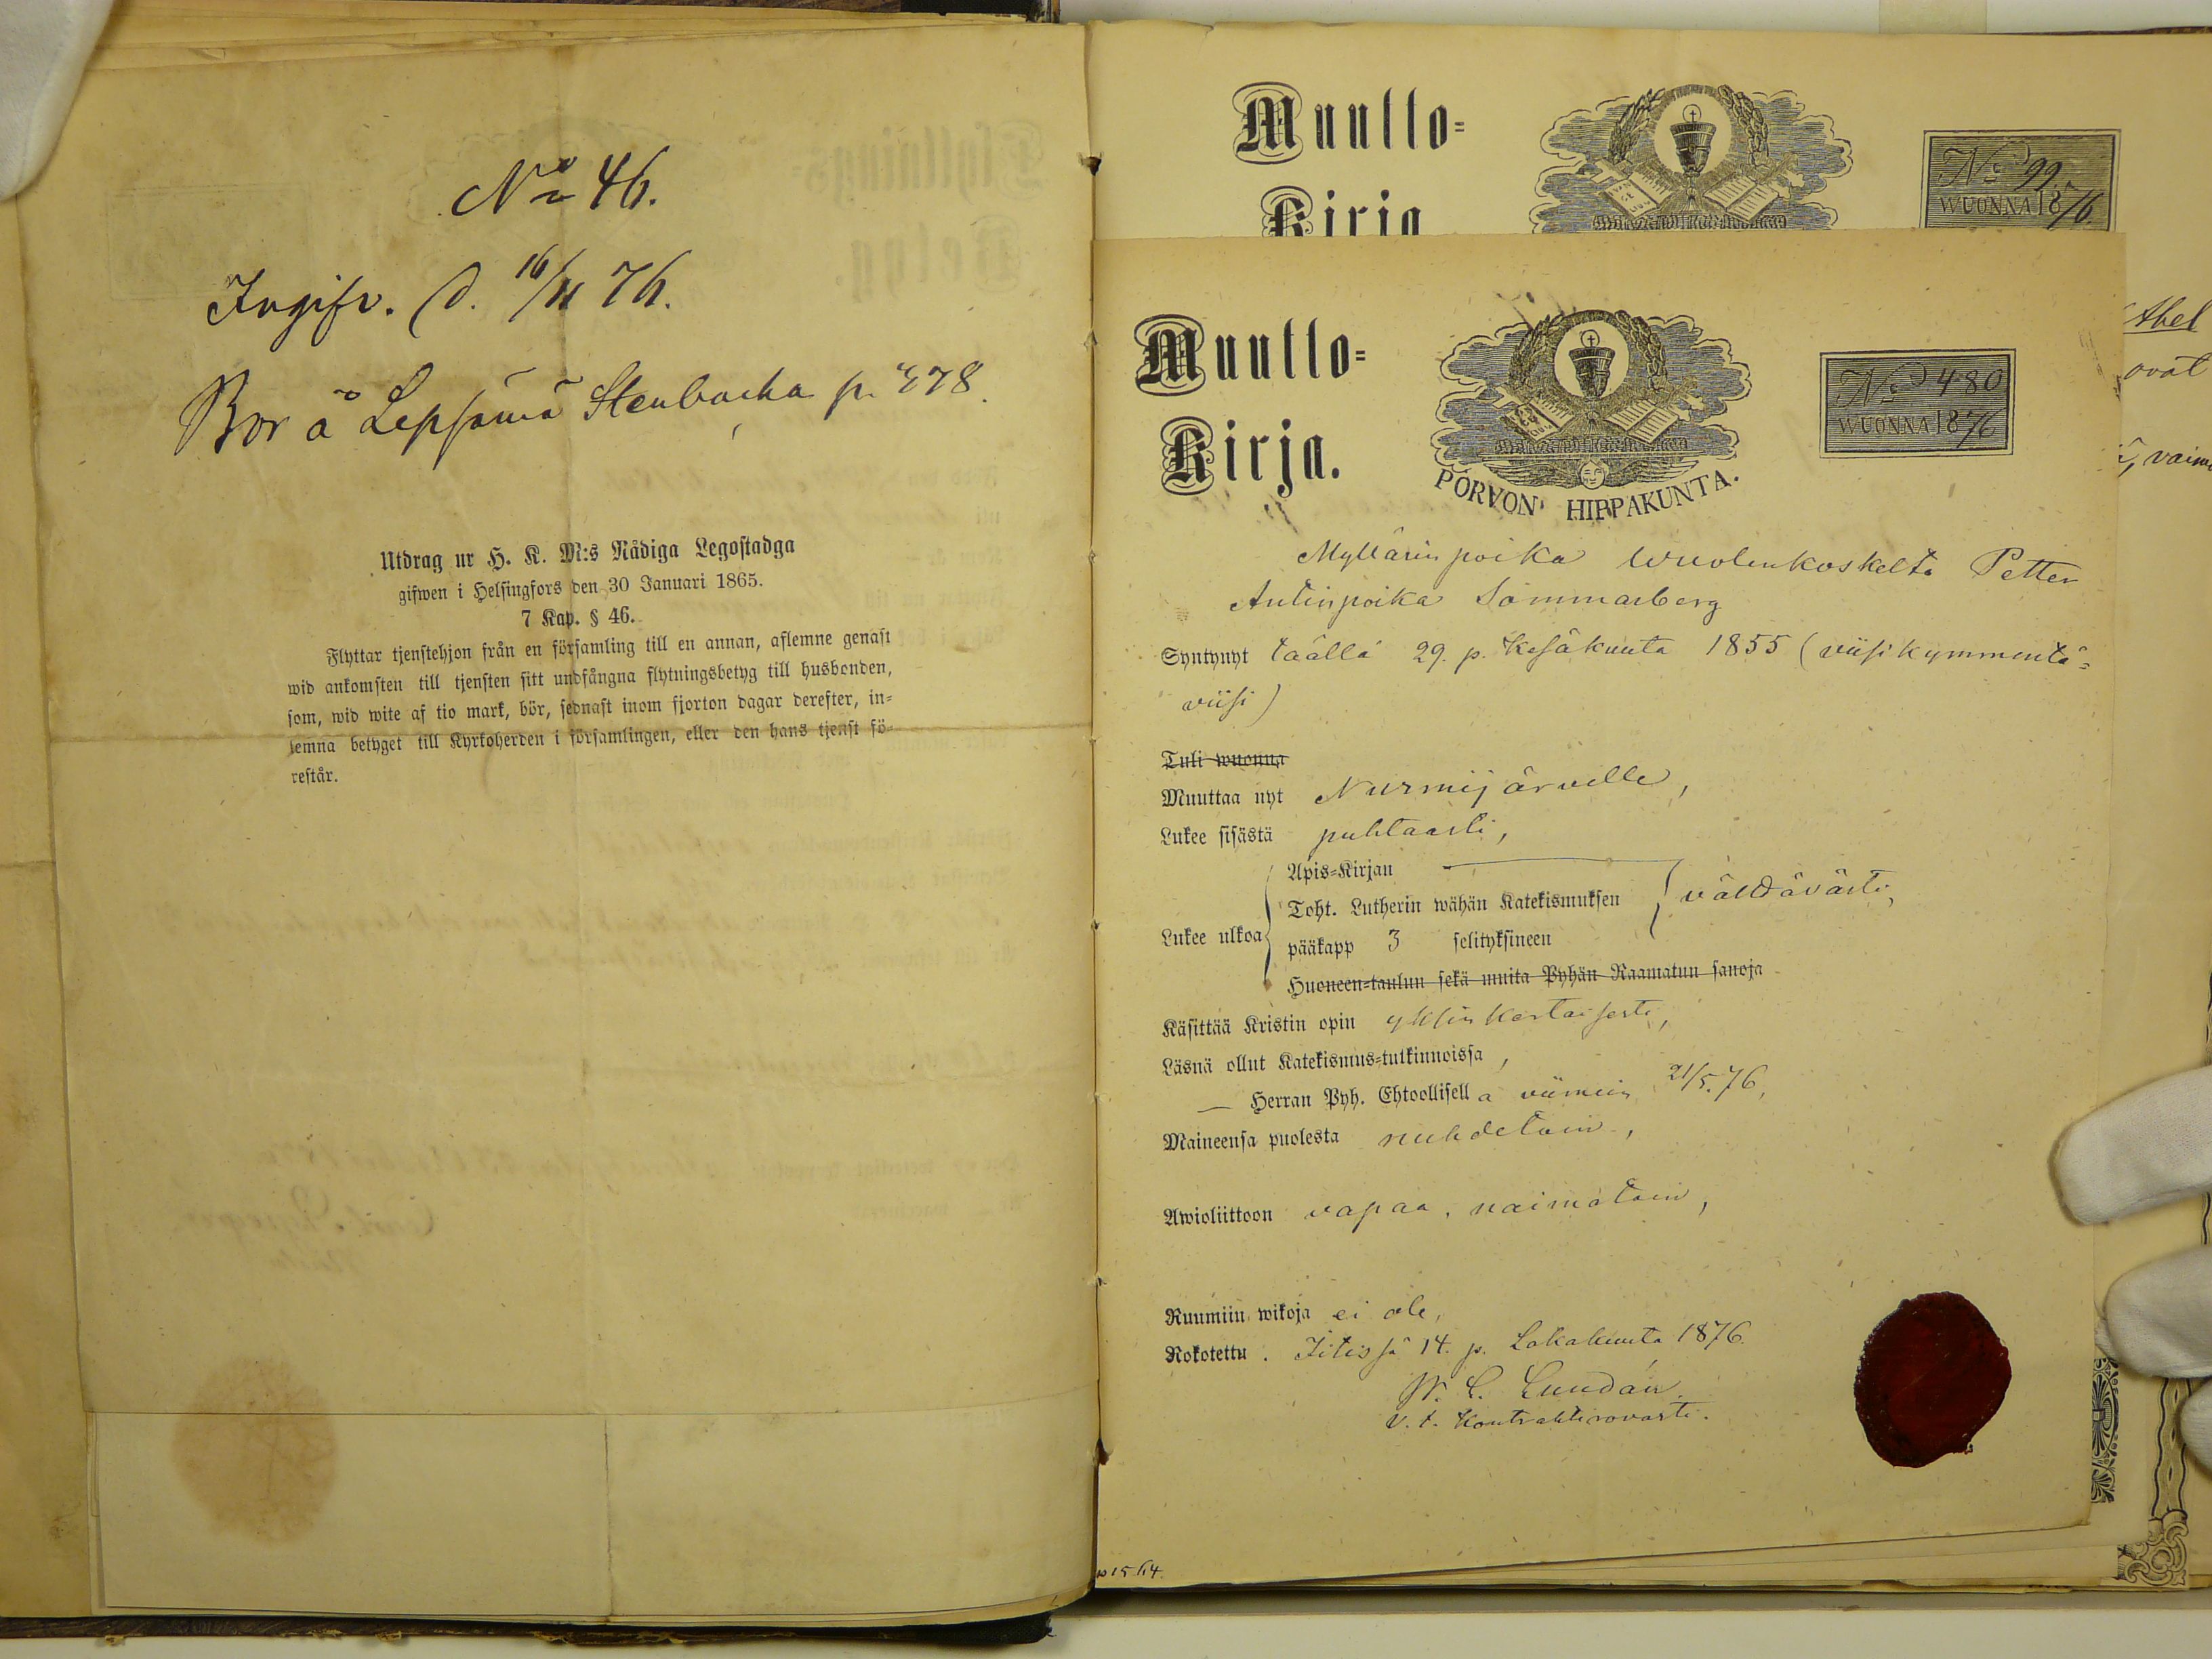 No 46.
Ingifv. d. 16/11 76.
Bor å Lepsämä Stenbacka p. 278.
Utdrag ur H. K. M:s Nådiga Legostadga
gifwen i Helsingfors den 30 Januari 1865.
7 Kap. § 46.
Flyttar tjenstehjon från en församling till en annan, aflemne genast
wid ankomsten till tjensten sitt undfångna flytningsbetyg till husbonden,
som, wid wite af tio mark, bör, sednast inom fjorton dagar derefter, in=
lemna betyget till Kyrkoherden i församlingen, eller den hans tjenst fö=
restår.
Muutto=
Kirja
No 99.
WUONNA 1876.
Abel
ovat
vaimo
Muutto=
Kirja.
PORVON HIPPAKUNTA.
No 480
WUONNA 1876
Myllärin poika Wuolenkoskelta Petter
Antinpoika Sommarberg
Syntynyt täällä 29. p. Kesäkuuta 1855 (viisikymmentä=
viisi)
Tuli wuonna
Muuttaa nyt Nurmijärvelle,
Lukee sisästä puhtaasti,
Apis=Kirjan
Toht. Lutherin wähän Katekismuksen välttävästi,
Lukee ulkoa
pääkapp 3 selityksineen
Huoneen=taulun sekä muita Pyhän Raamatun sanoja
Käsittää Kristin opin yksinkertaisesti,
Läsnä ollut Katekismus=tutkinnoissa,
— Herran Pyh. Ehtoollisella viimein 21/5. 76,
Maineensa puolesta nuhdetoin,
Awioliittoon vapaa, naimatoin,
Ruumiin wikoja ei ole,
Rokotettu. Iitissä 14. p. Lokakuuta 1876.
Lundán.
v. t. Kontrahtirovasti.